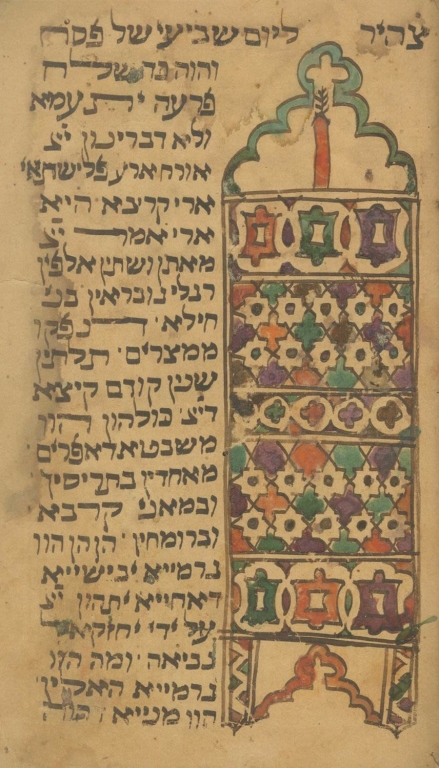 צהיר ליום שביעי של פסח
והוה כד שלח
פרעה ית עמא
ולא דברינון יי
אורח ארע פלישתאי
ארי קריבא היא
ארי אמר יי
מאתן ושתין אלפין
רגלי גוברין בני
חילא נפקו
ממצרים תלתין
שנין קודם קיצא
כולהון הוו
משבטיא דאפרים
מאחדין בתריסין
ובמאני קרבא
וברומחין הן הן הוו
גרמייא יבישייא
דיאחייא יתהון יי
על ידי יחזקאל
נביאה ומה הוו
גרמייא האלין
הוו